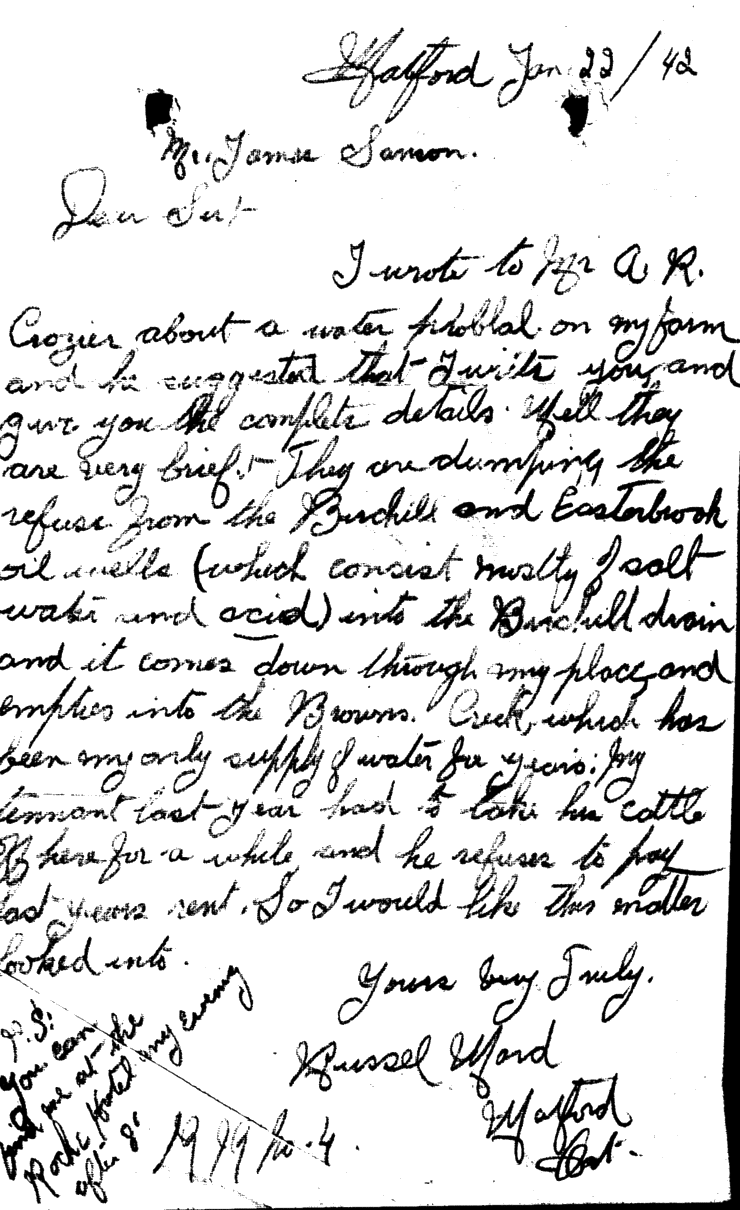 Watford Jan. 22/42
Mr. James Samson.
Dear Sir:-
I wrote to Mr A. R.
Crozier about a water problal on my farm
and he suggested that I write you, and
give you the complete details. Well they
are very brief:- They are dumping the
refuse from the Burchill and Easterbrook
oil wells (which consist mostly of salt
water and acid) into the Burchill drain
and it comes down through my place, and
empties into the Browns. Creek, which has
been my only supply of water for years; My
tennant last year had to take his cattle
off here for a while and he refuses to pay
last years rent. So I would like this matter
looked into.
Yours Very Truly.
Russel Ward
Watford
Ont.
P.S:
You can
find me at the
Roche Hotel any evening
after 8.
R R No. 4.